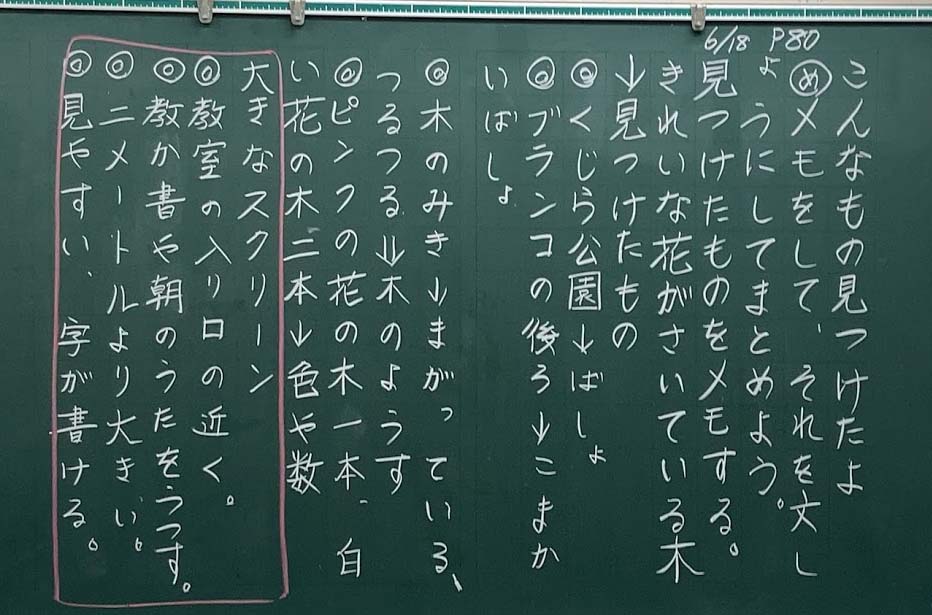 6/18 P80
こんなもの見つけたよ
㋱メモをして、それを文し
ょうにしてまとめよう。
見つけたものをメモする。
きれいな花がさいている木
↓見つけたもの
◎くじら公園↓ばしょ
◎ブランコの後ろ↓こまか
いばしょ
◎木のみき↓まがっている、
つるつる⇓木のようす
◎ピンクの花の木一本、白
い花の木二本↓色や数
大きなスクリーン
◎教室の入り口の近く。
◎教か書や朝のうたをうつす。
◎二メートルより大きい。
◎見やすい、字が書ける。